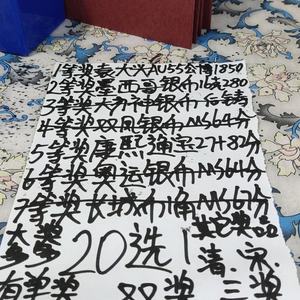 1等奖袁大头AU55公博1850
2等奖墨西哥银币16克280
3等奖大力神银币后铸
4等奖双凤银币MS64分
5等奖康熙通宝27+82分
6等奖奥运银币MS69分
7等奖长城币1角MS67分
大奖 20选1 其它奖品
清.宋.
有单奖 双奖 三奖